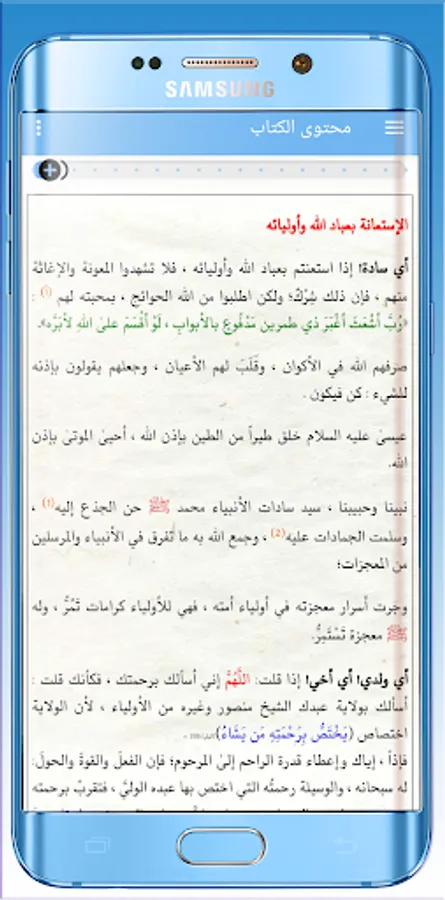 SAMSUNG
محتوى الكتاب
الإستعانة بعباد الله وأوليائه
أي سادة! إذا استعنتم بعباد الله وأوليائه ، فلا تشهدوا المعونة والإغاثة
منهم ، فإن ذلك شِرْكٌ؛ ولكن اطلبوا من الله الحوائج ، بمحبته لهم (١) :
«رُبَّ أَشْعَثَ أَغْبَرَ ذي طمرين مَدْفُوعٍ بالأبوابِ ، لَوْ أَقْسَمَ على اللهِ لأبَرَّه».
صرفهم الله في الأكوان ، وقَلَبَ لهم الأعيان ، وجعلهم يقولون بإذنه
للشيء : كن فيكون .
عيسىٰ عليه السلام خلق طيراً من الطين بإذن الله ، أحيىٰ الموتىٰ بإذن
الله.
نبينا وحبيبنا ، سيد سادات الأنبياء محمد ﷺ حن الجذع إليه(١) ،
وسلمت الجمادات عليه(2) ، وجمع الله به ما تفرق في الأنبياء والمرسلين
من المعجزات؛
وجرت أسرار معجزته في أولياء أمته ، فهي للأولياء كرامات تَمُرُّ ، وله
ﷺ معجزة تَسْتَمِرُّ.
أي ولدي! أي أخي! إذا قلت: اللَّهُمَّ إني أسألك برحمتك ، فكأنك قلت :
أسألك بولاية عبدك الشيخ منصور وغيره من الأولياء ، لأن الولاية
اختصاص (يَخْتَصُّ بِرَحْمَتِهِ مَن يَشَاءُ)
فإذاً ، إياك وإعطاء قدرة الراحم إلىٰ المرحوم؛ فإن الفعلَ والقوةَ والحولَ:
له سبحانه ، والوسيلة رحمتُه التي اختص بها عبده الوليَّ ، فتقربْ برحمته